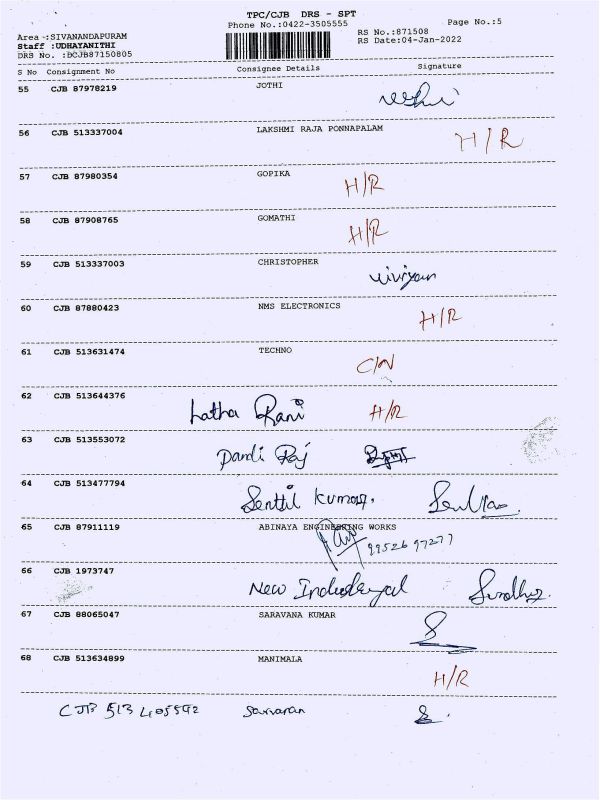 TPC/CJB DRS - SPT
Phone No.:0422-3505555
Page No.:5
Area :SIVANANDAPURAM
RS No.:871508
Staff :UDHAYANITHI
RS Date:04-Jan-2022
DRS No. :DCJB87150805
S No Consignment No Consignee Details Signature
55 CJB 87978219 JOTHI
56 CJB 513337004 LAKSHMI RAJA PONNAPALAM H/R
57 CJB 87980354 GOPIKA H/R
58 CJB 87908765 GOMATHI H/R
59 CJB 513337003 CHRISTOPHER
60 CJB 87880423 NMS ELECTRONICS H/R
61 CJB 513631474 TECHNO C/N
62 CJB 513644376 Latha Rani H/R
63 CJB 513553072 Pandi Raj
64 CJB 513477794 Senthil Kumar.
65 CJB 87911119 ABINAYA ENGINEERING WORKS
9952697277
66 CJB 1973747 New
67 CJB 88065047 SARAVANA KUMAR
68 CJB 513634899 MANIMALA H/R
CJB 513405592